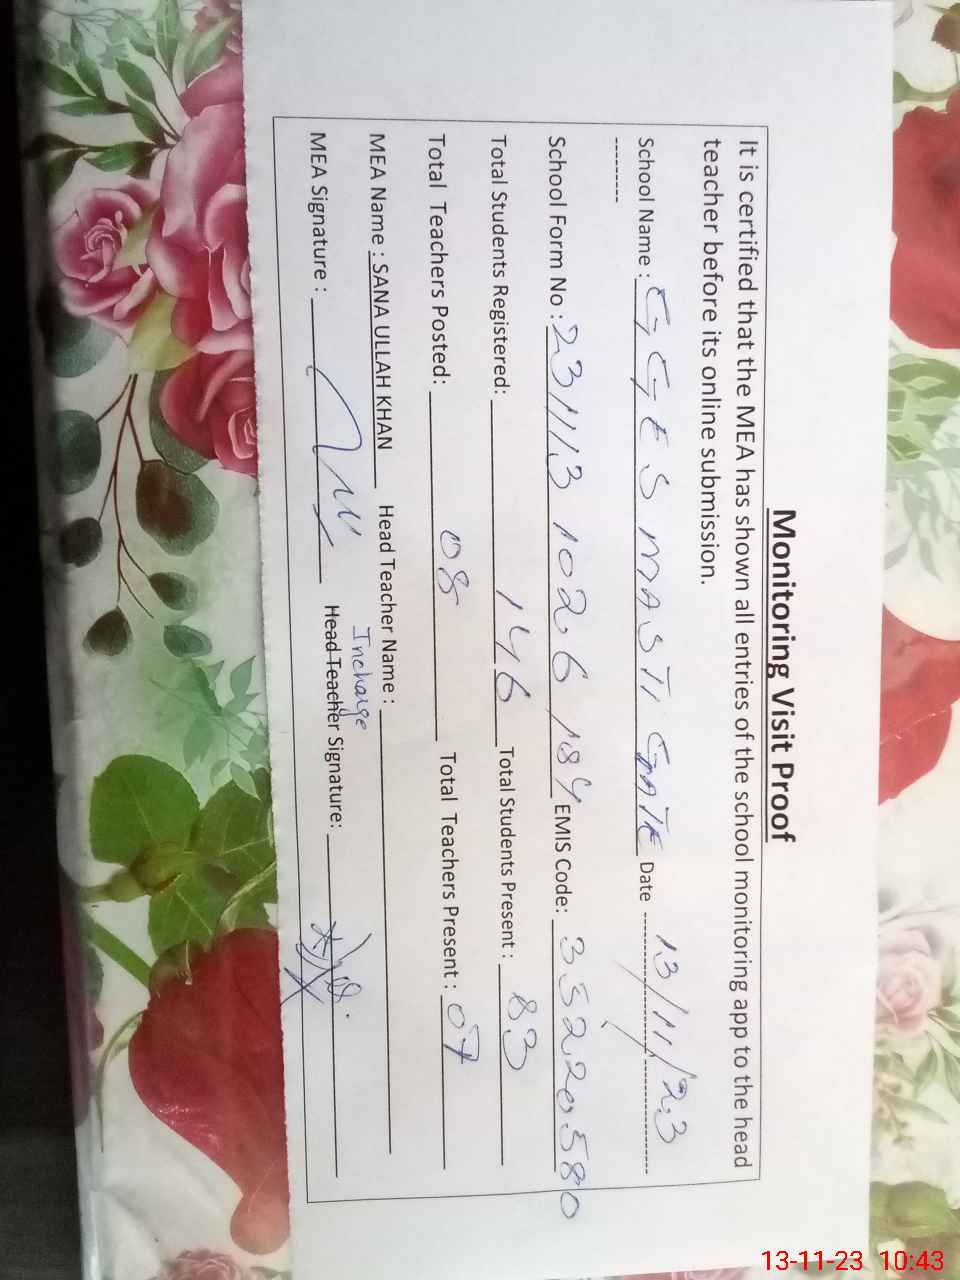 Monitoring Visit Proof
It is certified that the MEA has shown all entries of the school monitoring app to the head
teacher before its online submission.
School Name : GGES MASTI GATE Date 13/11/23
--------
School Form No : 231113 1026 184 EMIS Code: 35220580
Total Students Registered: 146 Total Students Present : 83
Total Teachers Posted: 08 Total Teachers Present : 07
MEA Name : SANA ULLAH KHAN Head Teacher Name :
Incharge
MEA Signature : Head Teacher Signature:
13-11-23 10:43